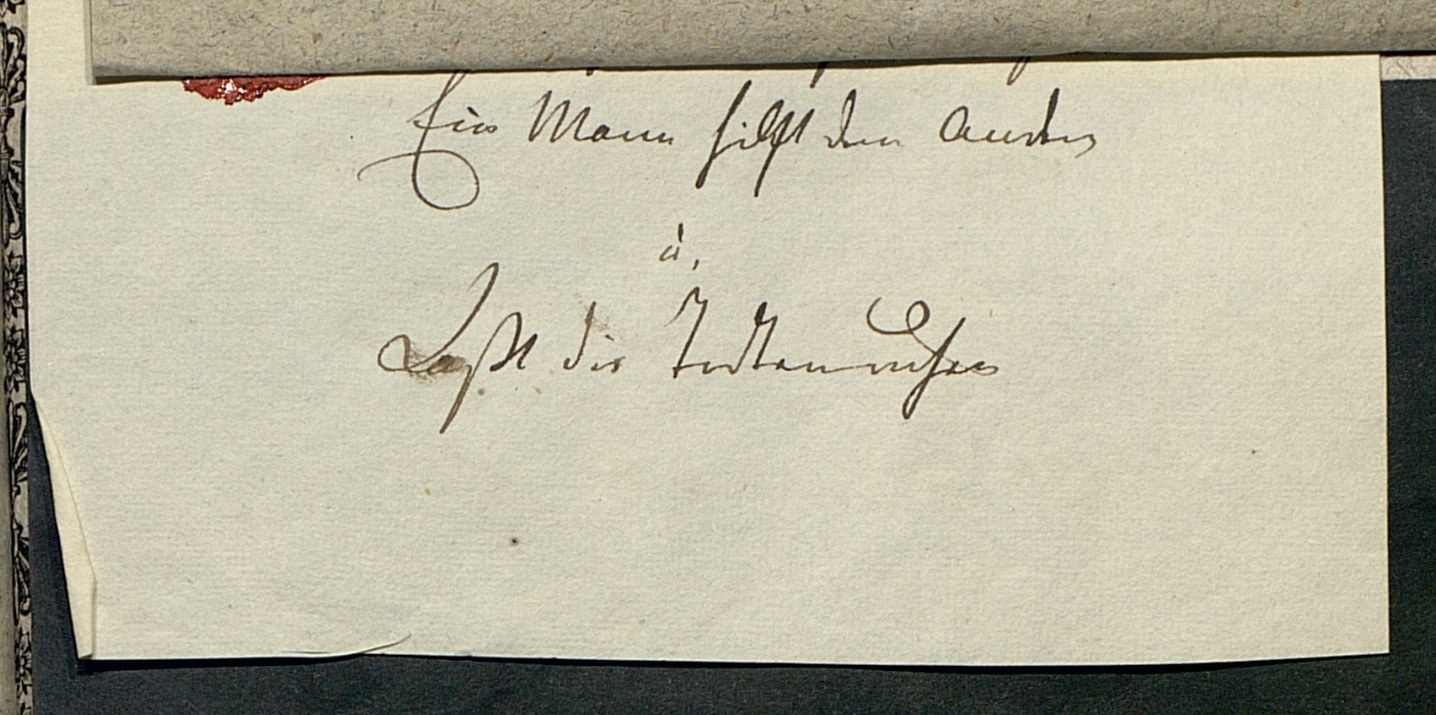 Ein Mann hilft dem Andern
u,
Laßt die Todten ruhen